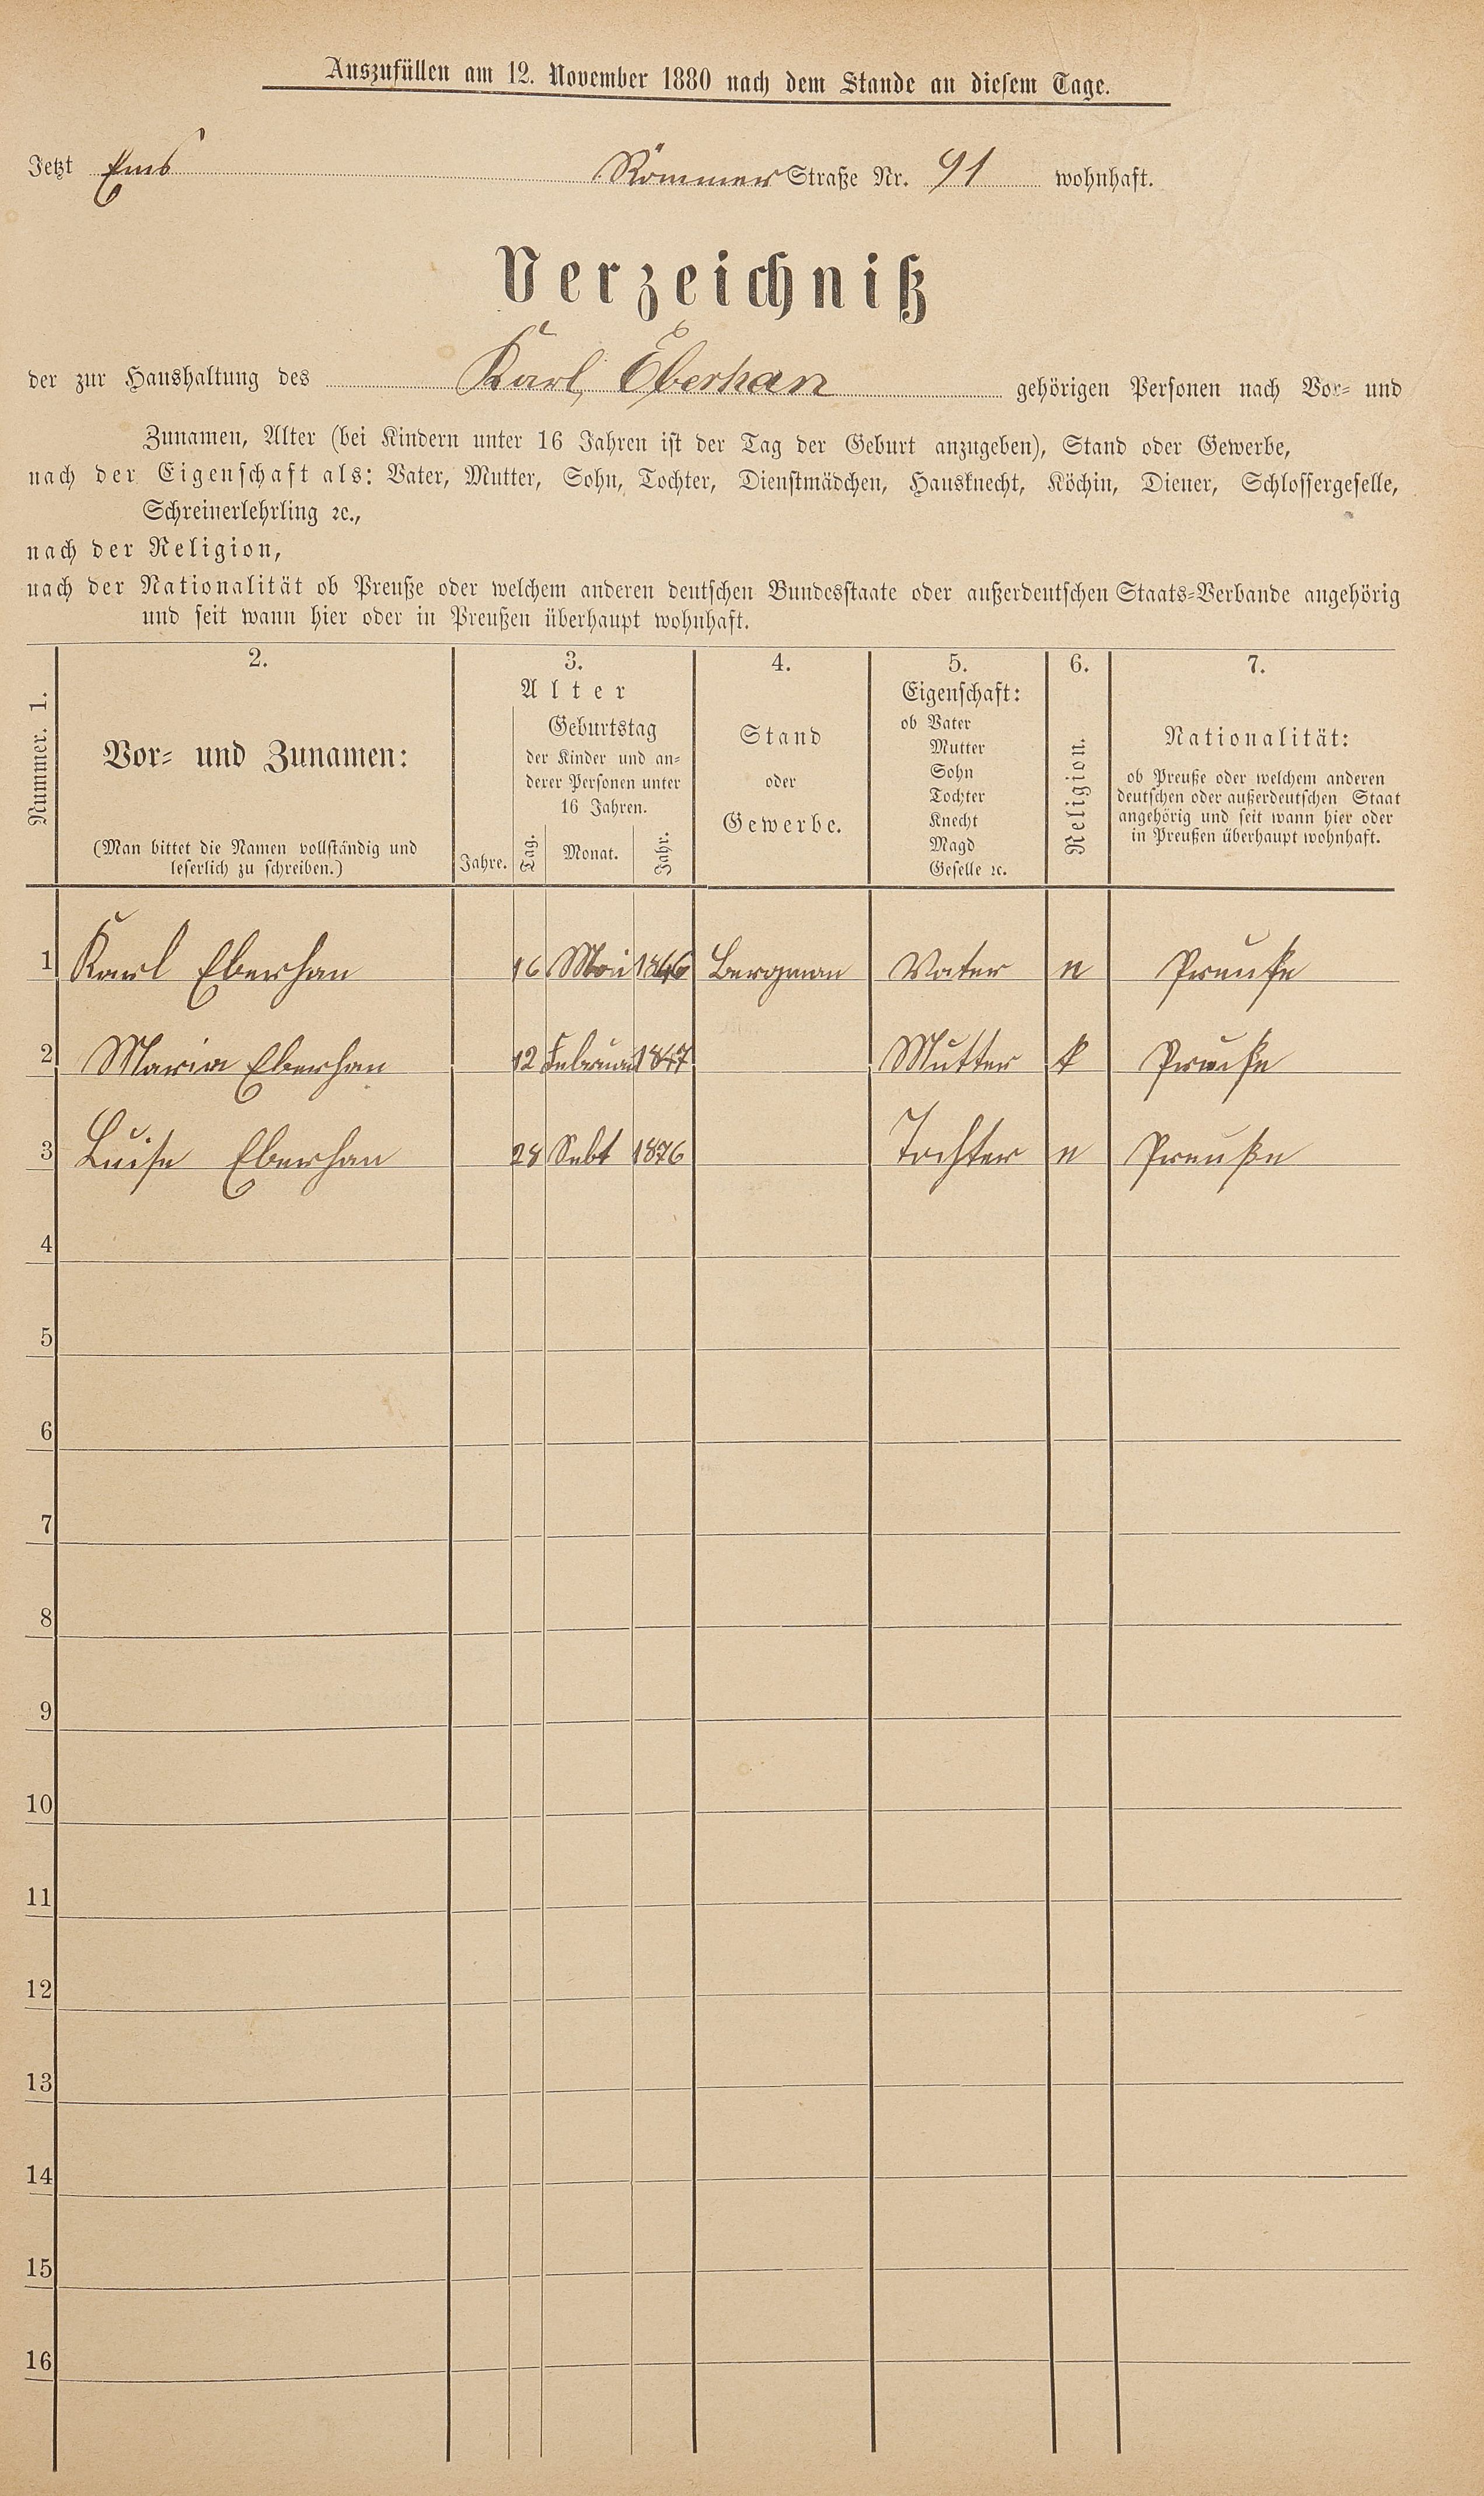 Auszufüllen am 12. November 1880 nach dem Stande an diesem Tage.
Jetzt Ems Römmer Straße Nr. 91 wohnhaft.
Verzeichniß
der zur Haushaltung des Karl Eberhan gehörigen Personen nach Vor- und
Zunamen, Alter (bei Kindern unter 16 Jahren ist der Tag der Geburt anzugeben), Stand oder Gewerbe,
nach der Eigenschaft als: Vater, Mutter, Sohn, Tochter, Dienstmädchen, Hausknecht, Köchin, Diener, Schlossergeselle,
Schreinerlehrling ꝛc.,
nach der Religion,
nach der Nationalität ob Preuße oder welchem anderen deutschen Bundesstaate oder außerdeutschen Staats-Verbande angehörig
und seit wann hier oder in Preußen überhaupt wohnhaft.
Nummer. 1.
2.
Vor- und Zunamen:
(Man bittet die Namen vollständig und
leserlich zu schreiben.)
3.
Alter
Jahre.
Geburtstag
der Kinder und an-
derer Personen unter
16 Jahren.
Tag. Monat. Jahr.
4.
Stand
oder
Gewerbe.
5.
Eigenschaft:
ob Vater
Mutter
Sohn
Tochter
Knecht
Magd
Geselle ꝛc.
6.
Religion.
7.
Nationalität:
ob Preuße oder welchem anderen
deutschen oder außerdeutschen Staat
angehörig und seit wann hier oder
in Preußen überhaupt wohnhaft.
1 Karl Eberhan 16 Mai 1846 Bergman Vater e Preuße
2 Maria Eberhan 12 Februar 1847 Mutter k Preuße
3 Luise Eberhan 28 Sebt 1876 Tochter e Preuße
4
5
6
7
8
9
10
11
12
13
14
15
16